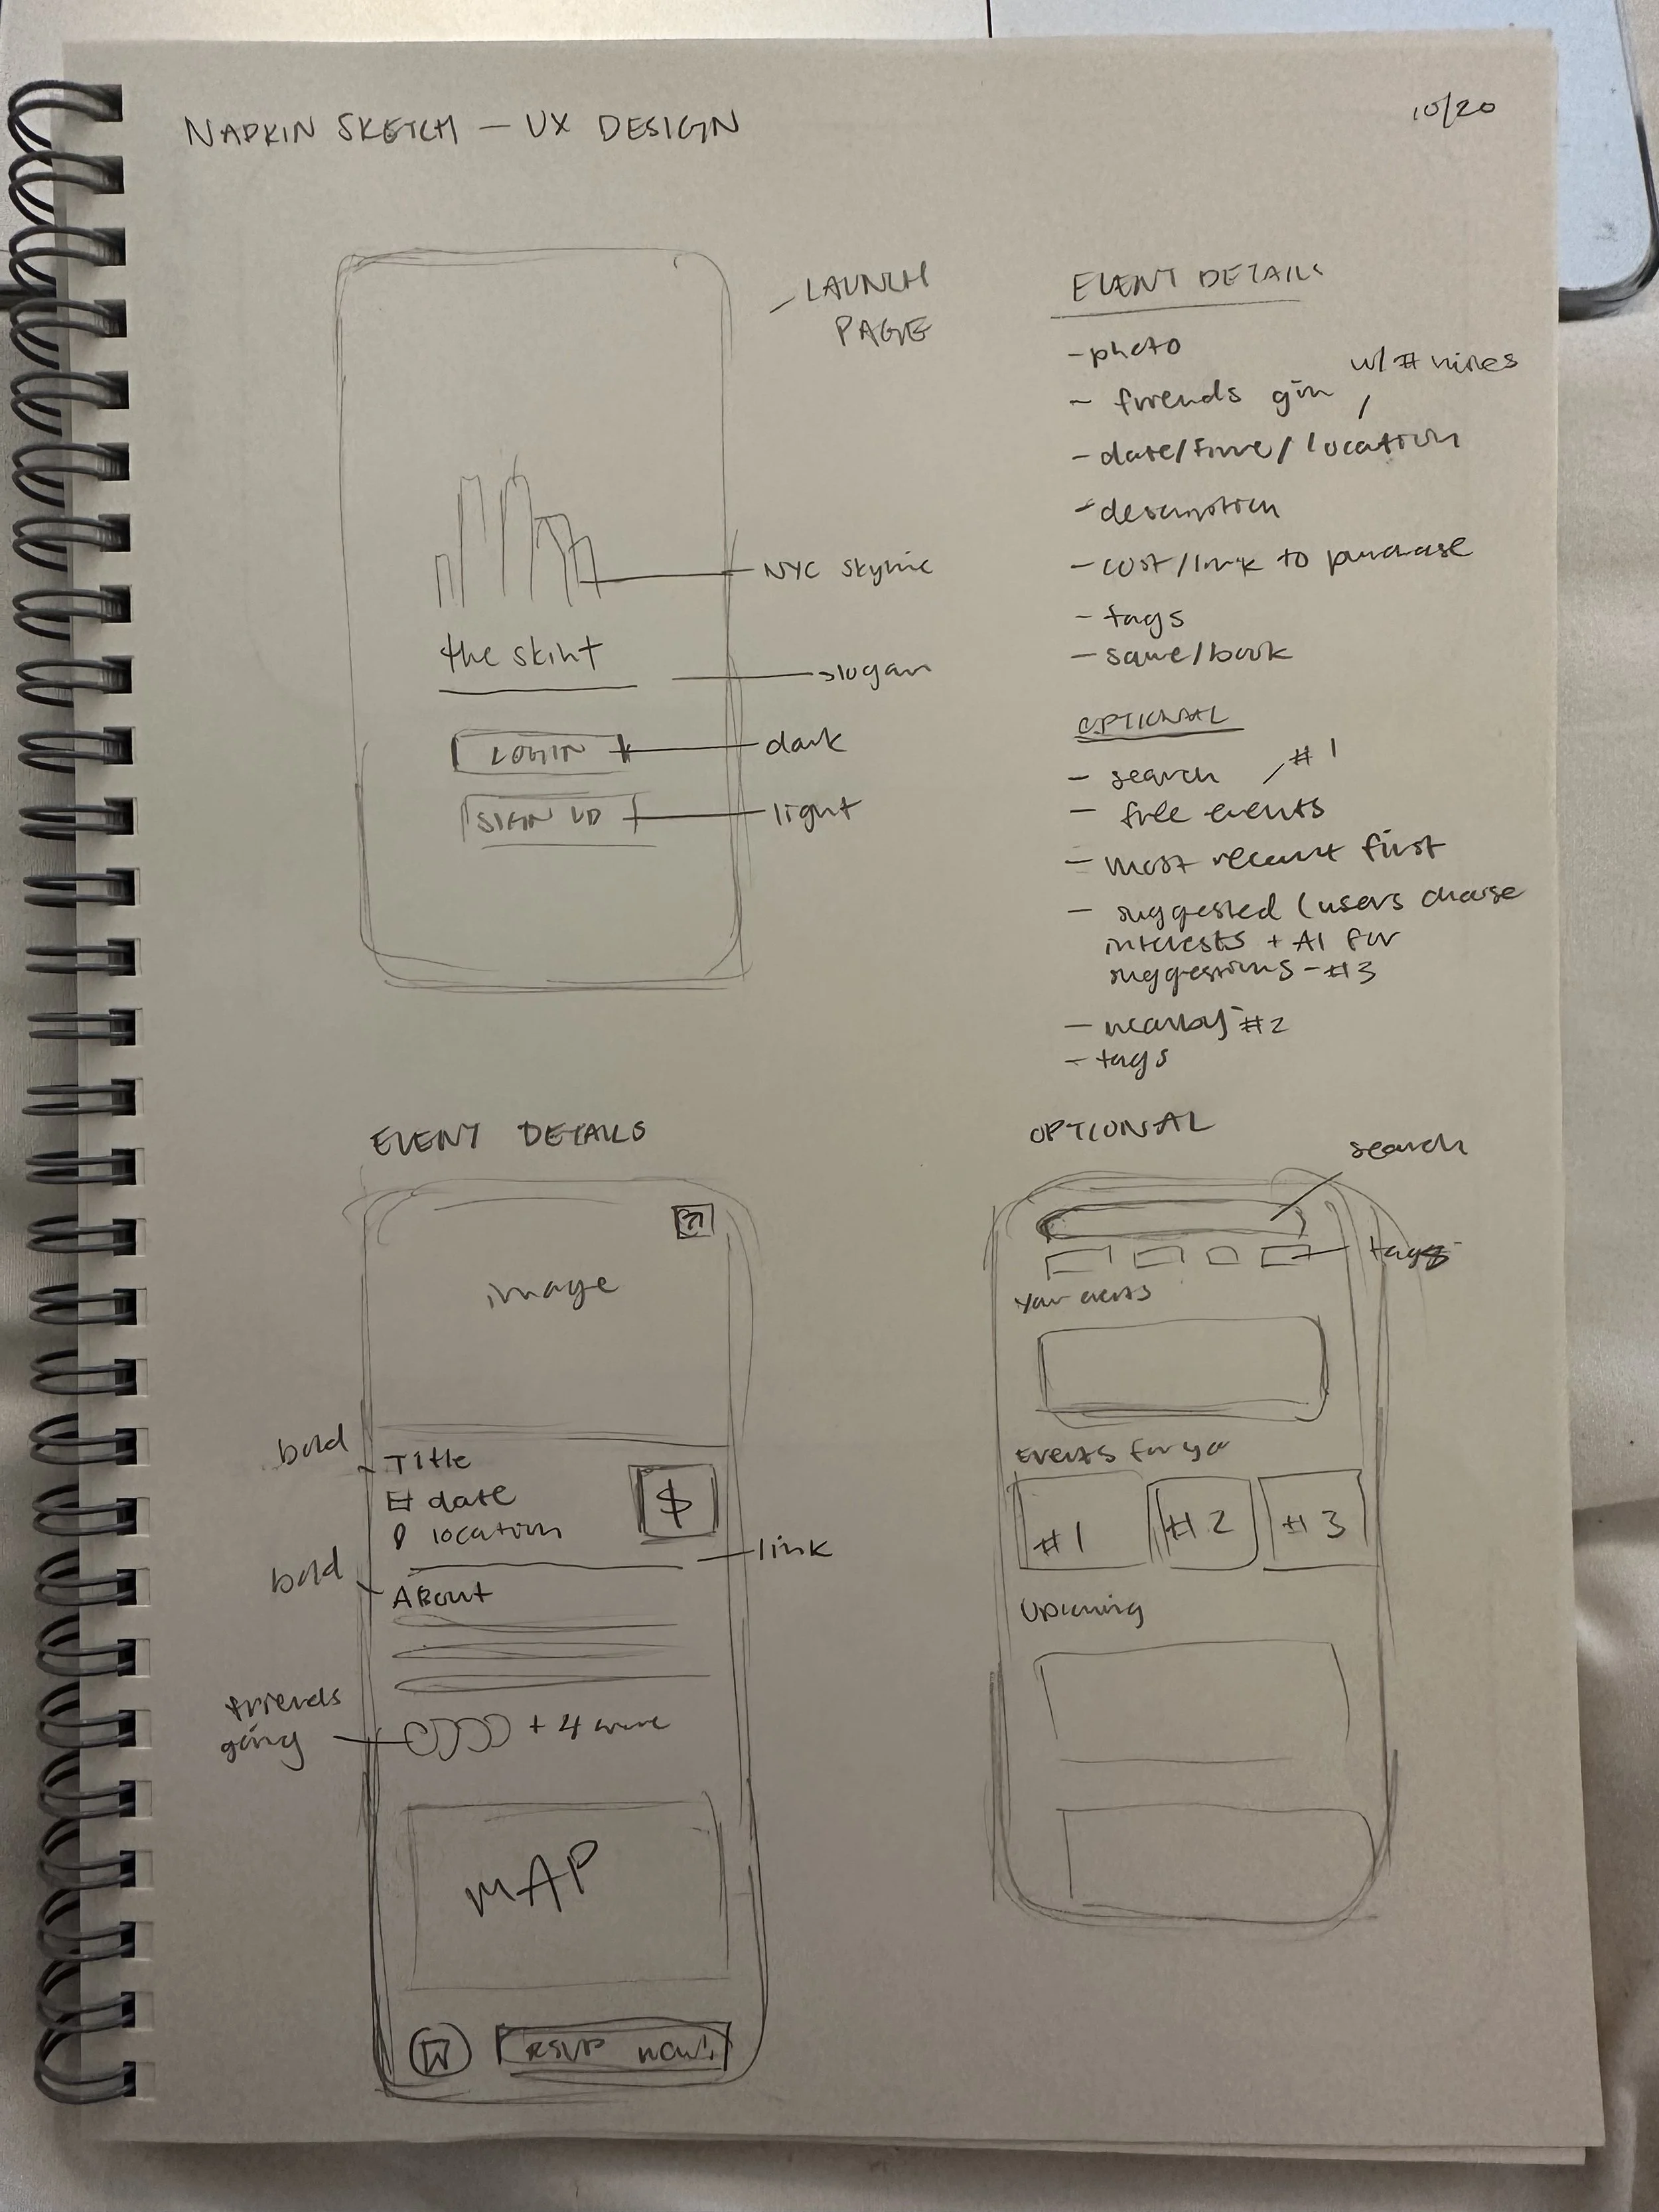 NAPKIN SKETCH — UX DESIGN
10/20
LAUNCH
PAGE
NYC skyline
the skint
slogan
LOGIN
dark
SIGN UP
light
EVENT DETAILS
- photo
- friends goin, w/ #
- date/time/location
- description
- cost/link to purchase
- tags
- save/book
OPTIONAL
- search
- free events #1
- most recent first
- suggested (users choose
interests + AI for
suggestions - #3
- nearby #2
- tags
EVENT DETAILS
image
bold
Title
date
location
$
link
bold
ABout
friends
going
+ 4 more
MAP
RSVP now!
OPTIONAL
search
tags
Your events
Events for you
#1
#2
#3
Upcoming